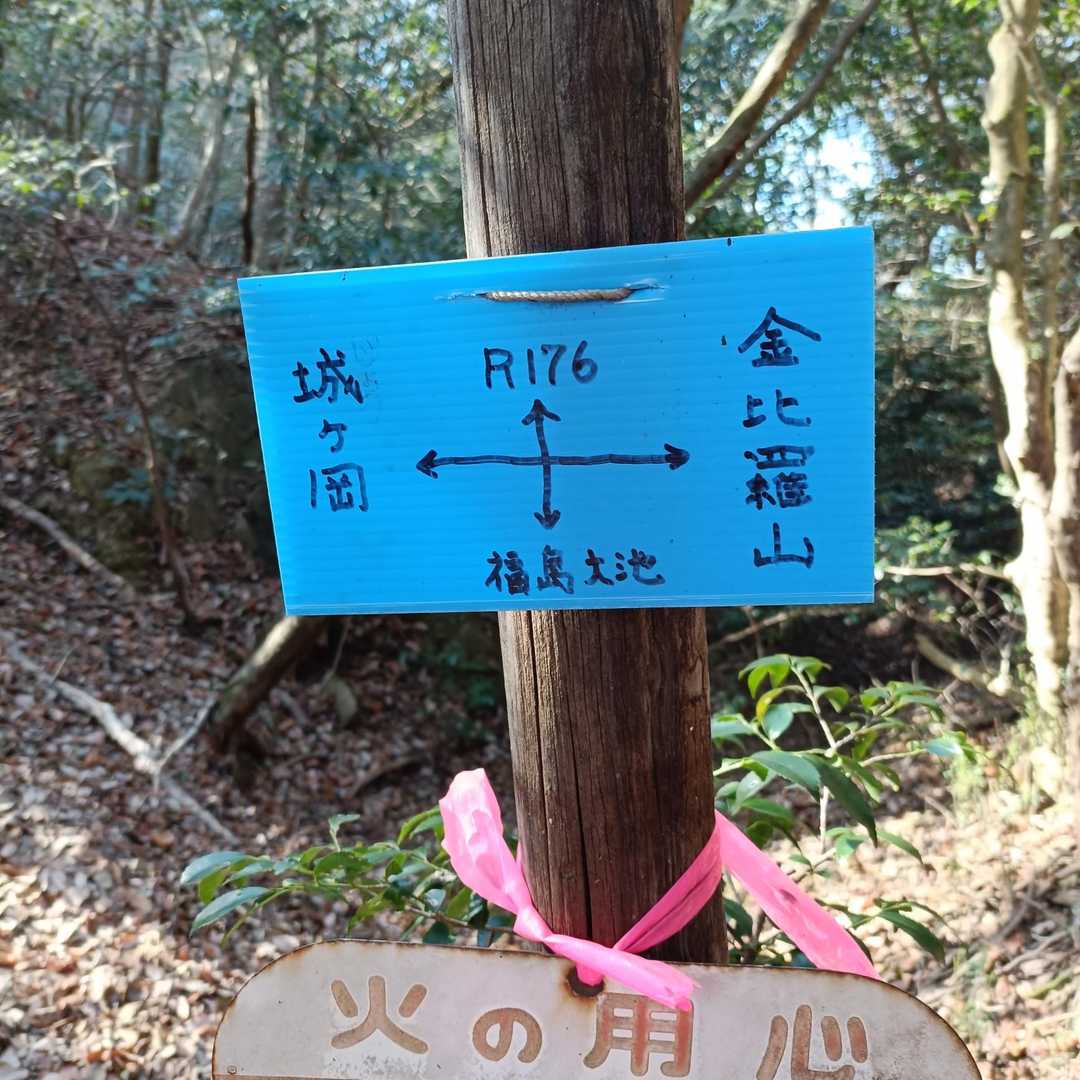 城ヶ岡
R176
金比羅山
福島大池
火の用心